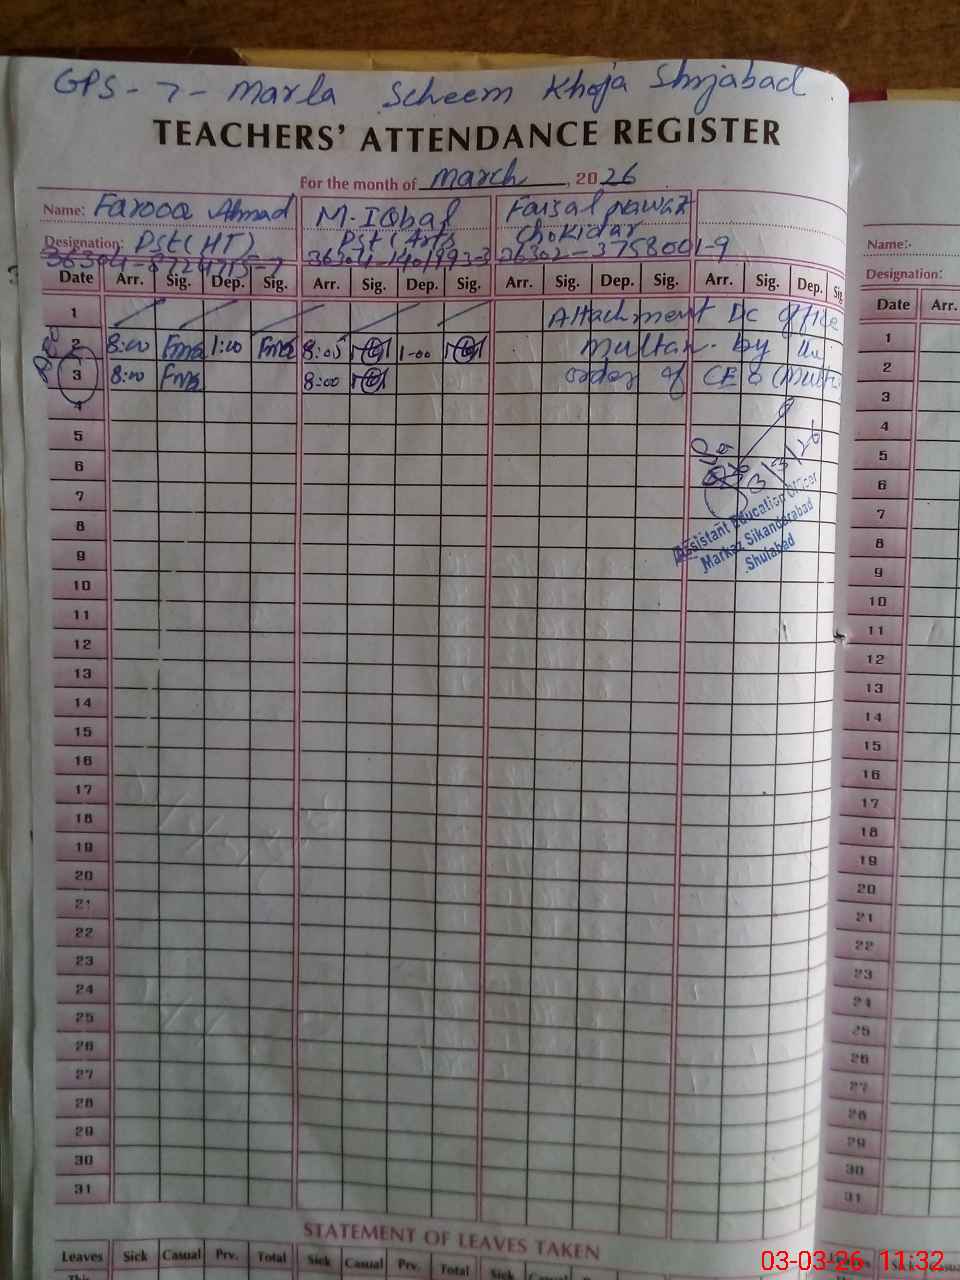 GPS - 7 - Marla Scheem Khoja Shujabad
TEACHERS' ATTENDANCE REGISTER
For the month of March, 2026
Name: Farooq Ahmad M. Iqbal Faisal Nawaz
Designation: Pst (HT) Pst (Arts Chokidar
36304-1401993-3 36302-3758001-9
Date Arr. Sig. Dep. Sig. Arr. Sig. Dep. Sig. Arr. Sig. Dep. Sig. Arr. Sig. Dep. Sig
1 Attachment DC office
2 8:00 1:00 8:05 1-00 Multan by the
3 8:00 8:00 order of CEO (Multa
4
5
6
7
8
9
10
11
12
13
14
15
16
17
18
19
20
21
22
23
24
25
26
27
28
29
30
31
3/3/26
Assistant Education Officer
Markaz Sikandarabad
Shujabad
STATEMENT OF LEAVES TAKEN
Leaves Sick Casual Prv. Total Sick Casual Prv. Total Sick Casual
This
Name:-
Designation:
Date Arr.
1
2
3
4
5
6
7
8
9
10
11
12
13
14
15
16
17
18
19
20
21
22
23
24
25
26
27
28
29
30
31
03-03-26 11:32